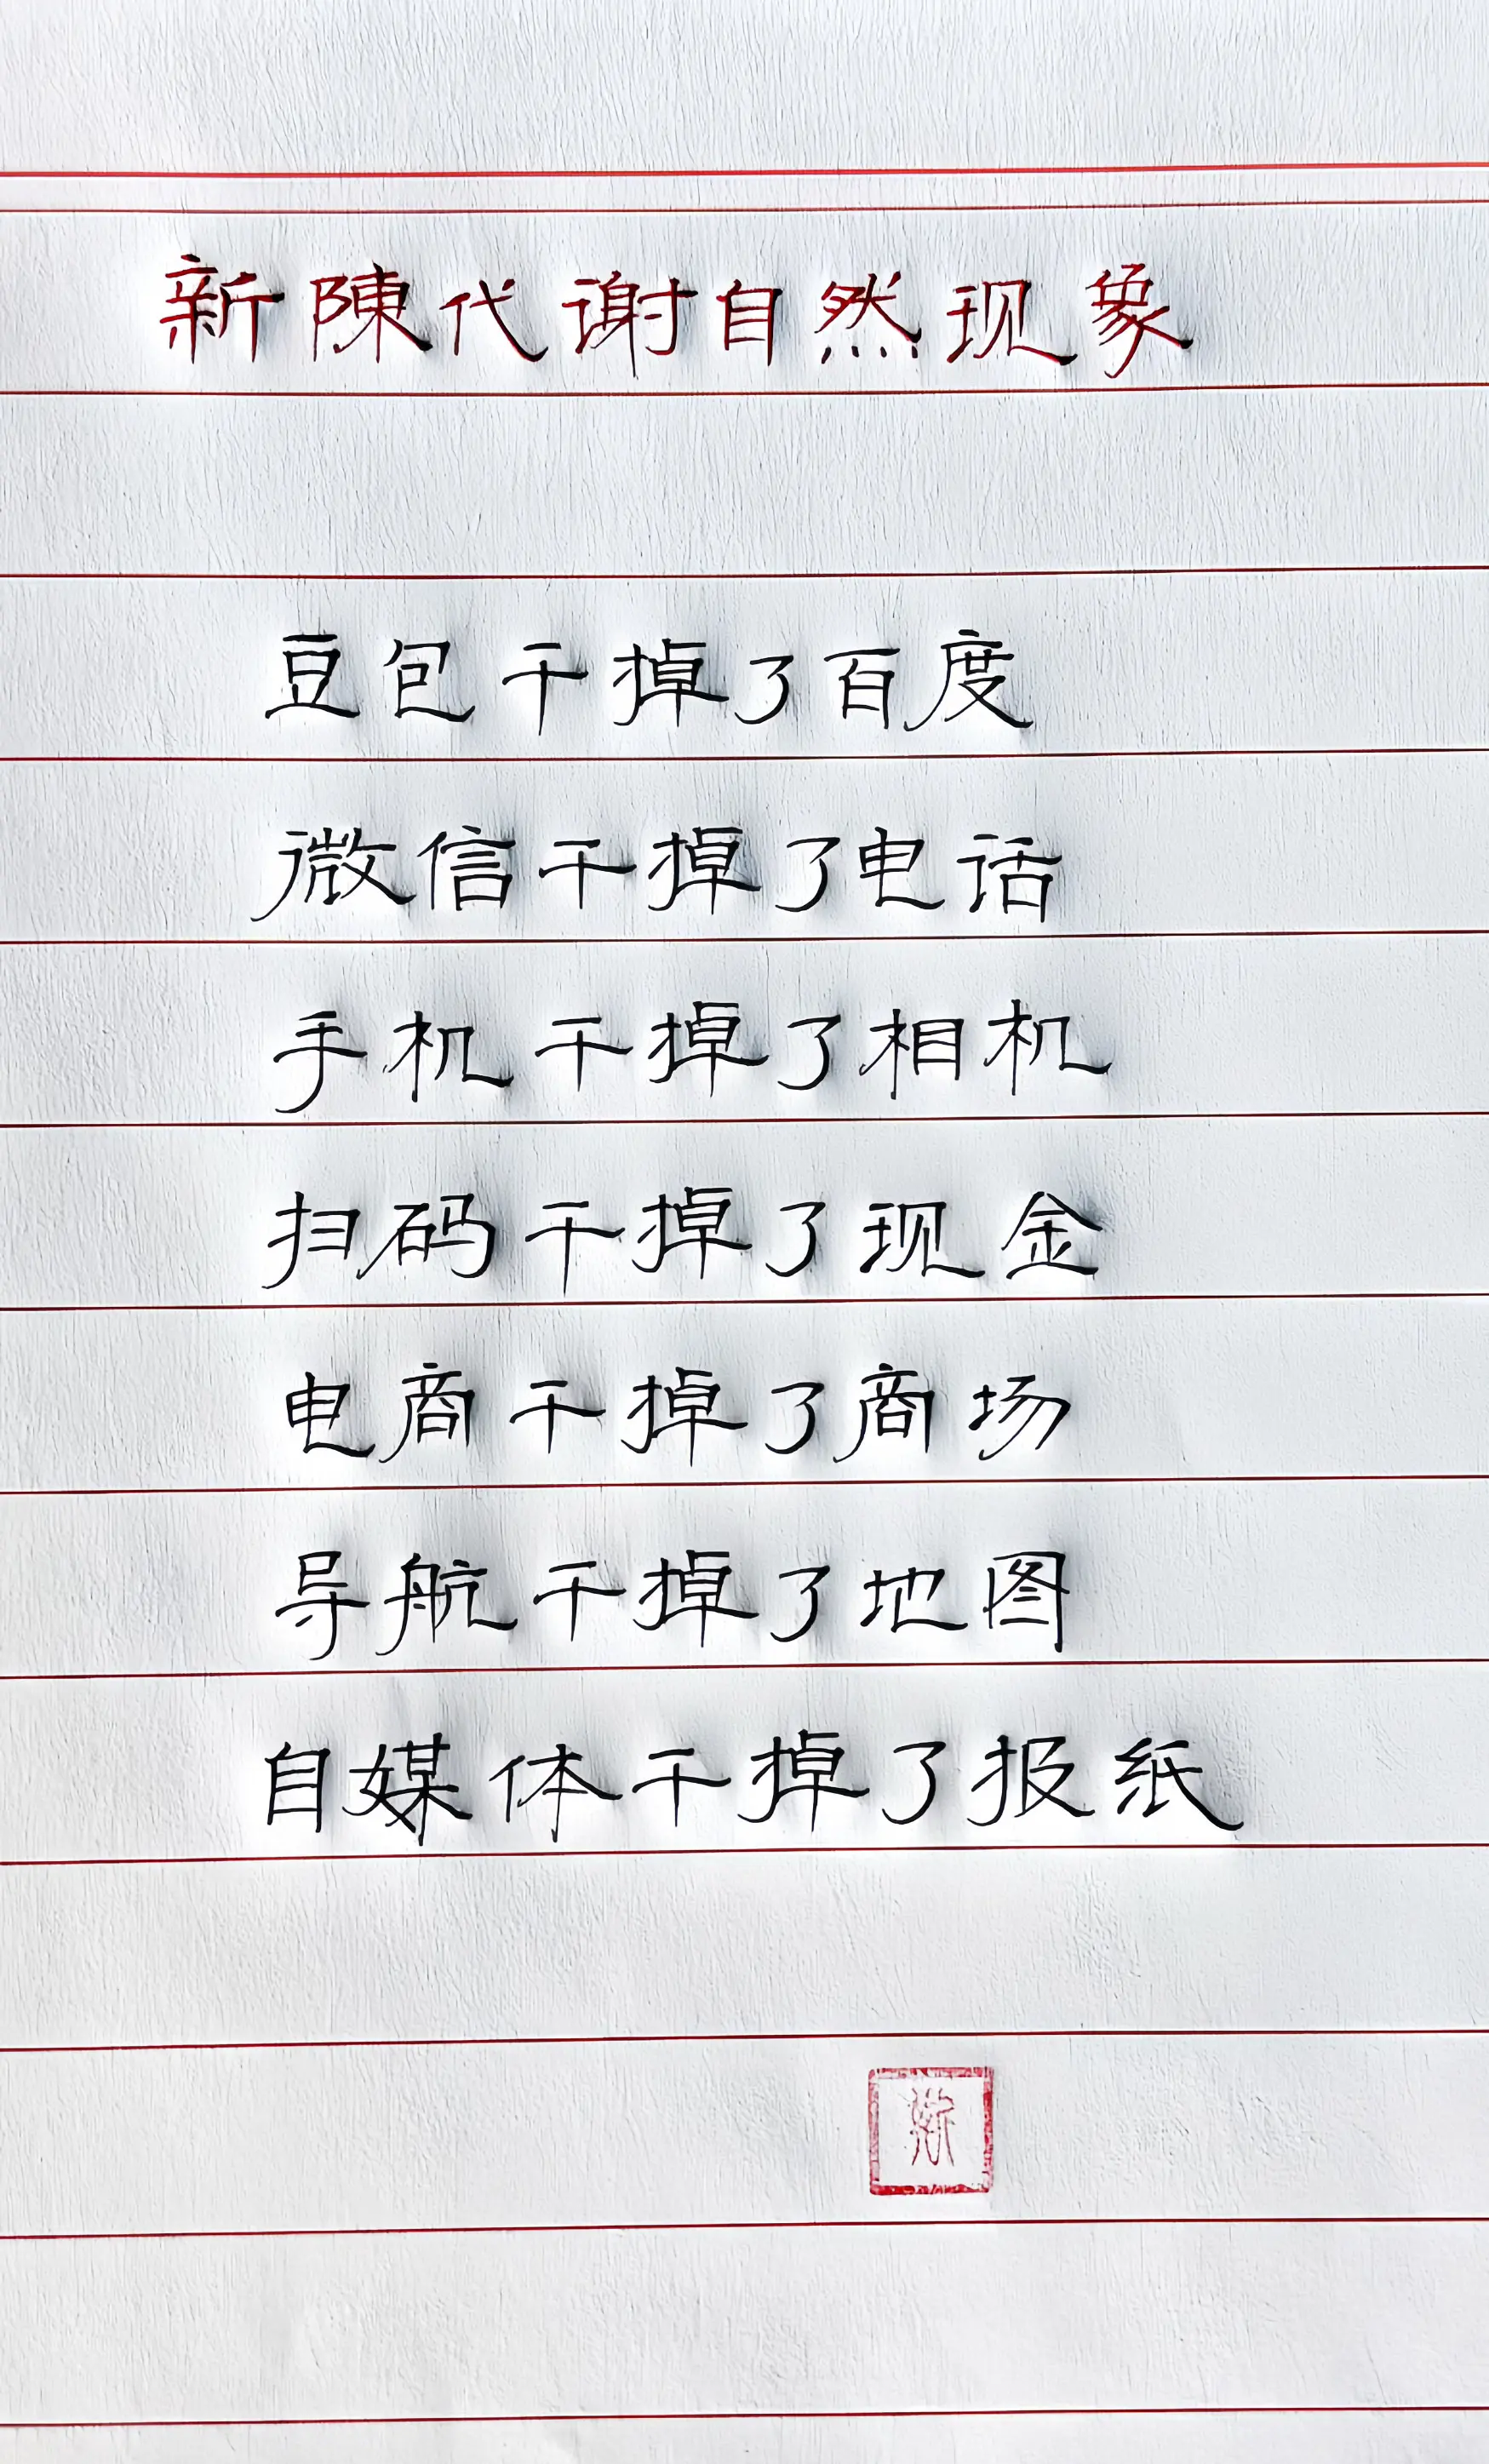 新陳代谢自然现象
豆包干掉了百度
微信干掉了电话
手机干掉了相机
扫码干掉了现金
电商干掉了商场
导航干掉了地图
自媒体干掉了报纸